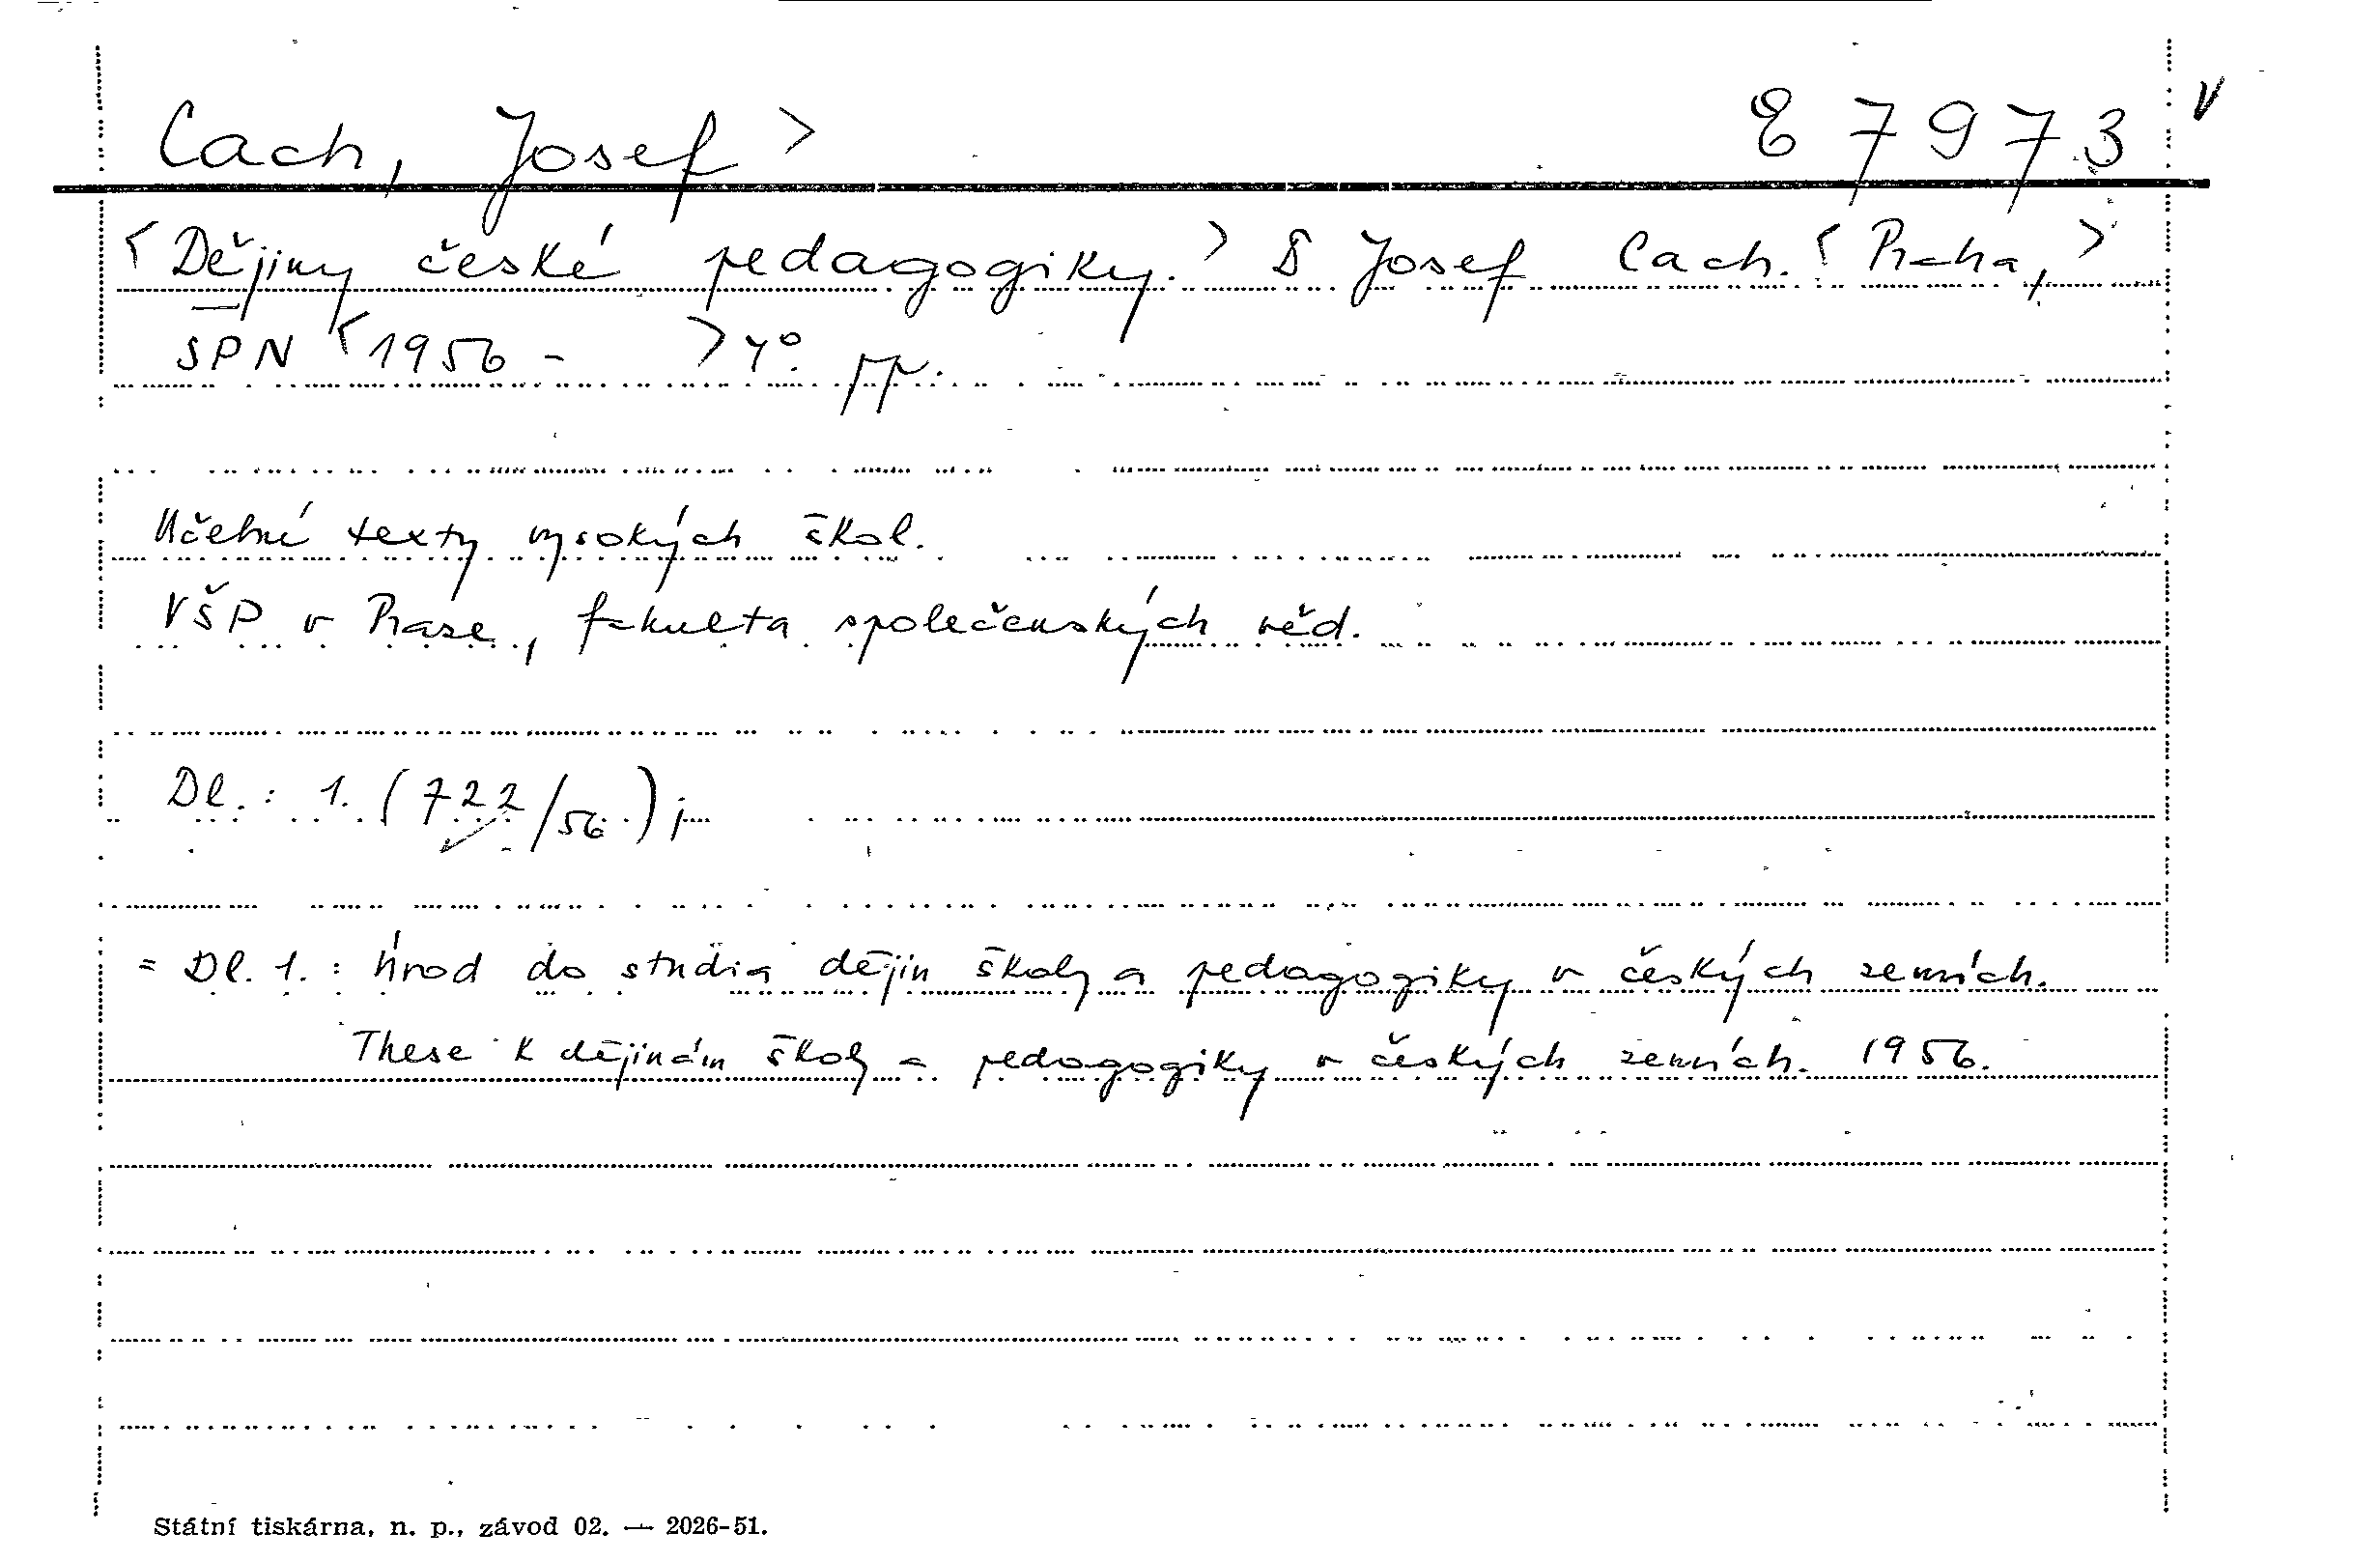 Cach, Josef > E 7973 V
<Dějiny české pedagogiky.> Josef Cach. <Praha,>
SPN <1956 - > 4°. pp.
Učební texty vysokých škol.
VŠP v Praze, fakulta společenských věd.
Dl.: 1. (722/56);
= Dl. 1.: Úvod do studia dějin školy a pedagogiky v českých zemích.
These k dějinám školy a pedagogiky v českých zemích. 1956.
Státní tiskárna, n. p., závod 02. — 2026-51.